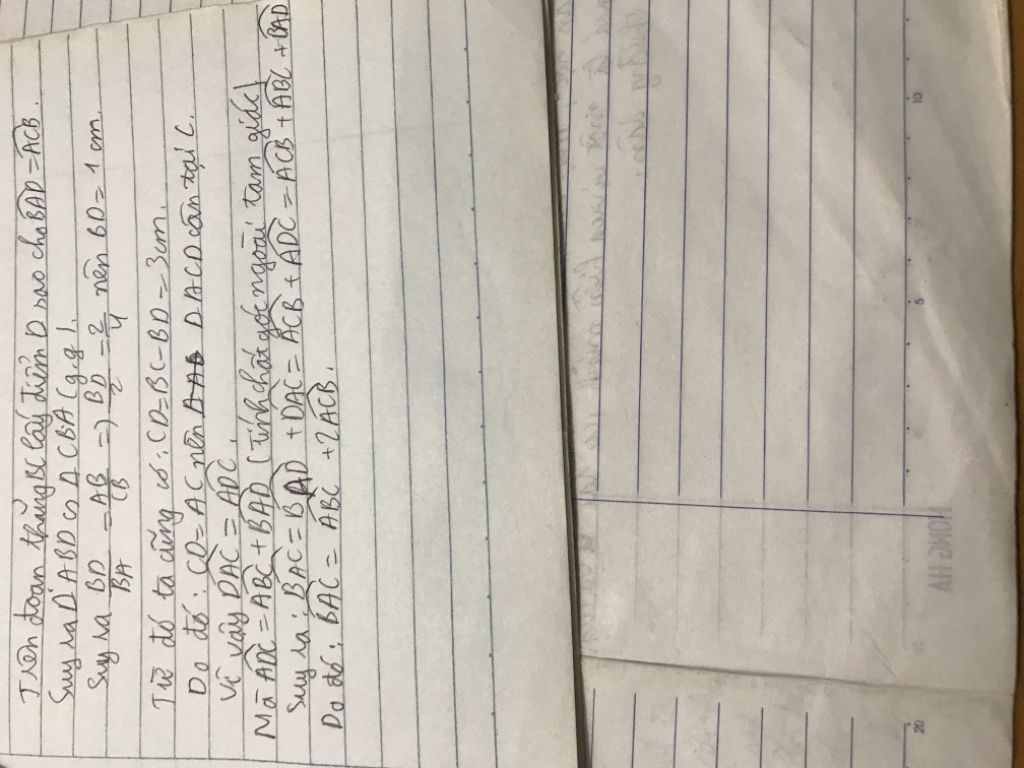 Trên đoạn thẳng BC lấy điểm D sao cho BAD = ACB.
Suy ra Δ ABD ∽ Δ CBA (g.g).
Suy ra BD/BA = AB/CB => BD/2 = 2/4 nên BD = 1 cm.
Từ đó ta cũng có: CD = BC - BD = 3cm.
Do đó: CD = AC nên Δ ACD cân tại C.
Vì vậy DAC = ADC.
Mà ADC = ABC + BAD (tính chất góc ngoài tam giác)
Suy ra: BAC = BAD + DAC = ACB + ADC = ACB + ABC + BAD
Do đó: BAC = ABC + 2ACB.
HONG HA
5
10
20